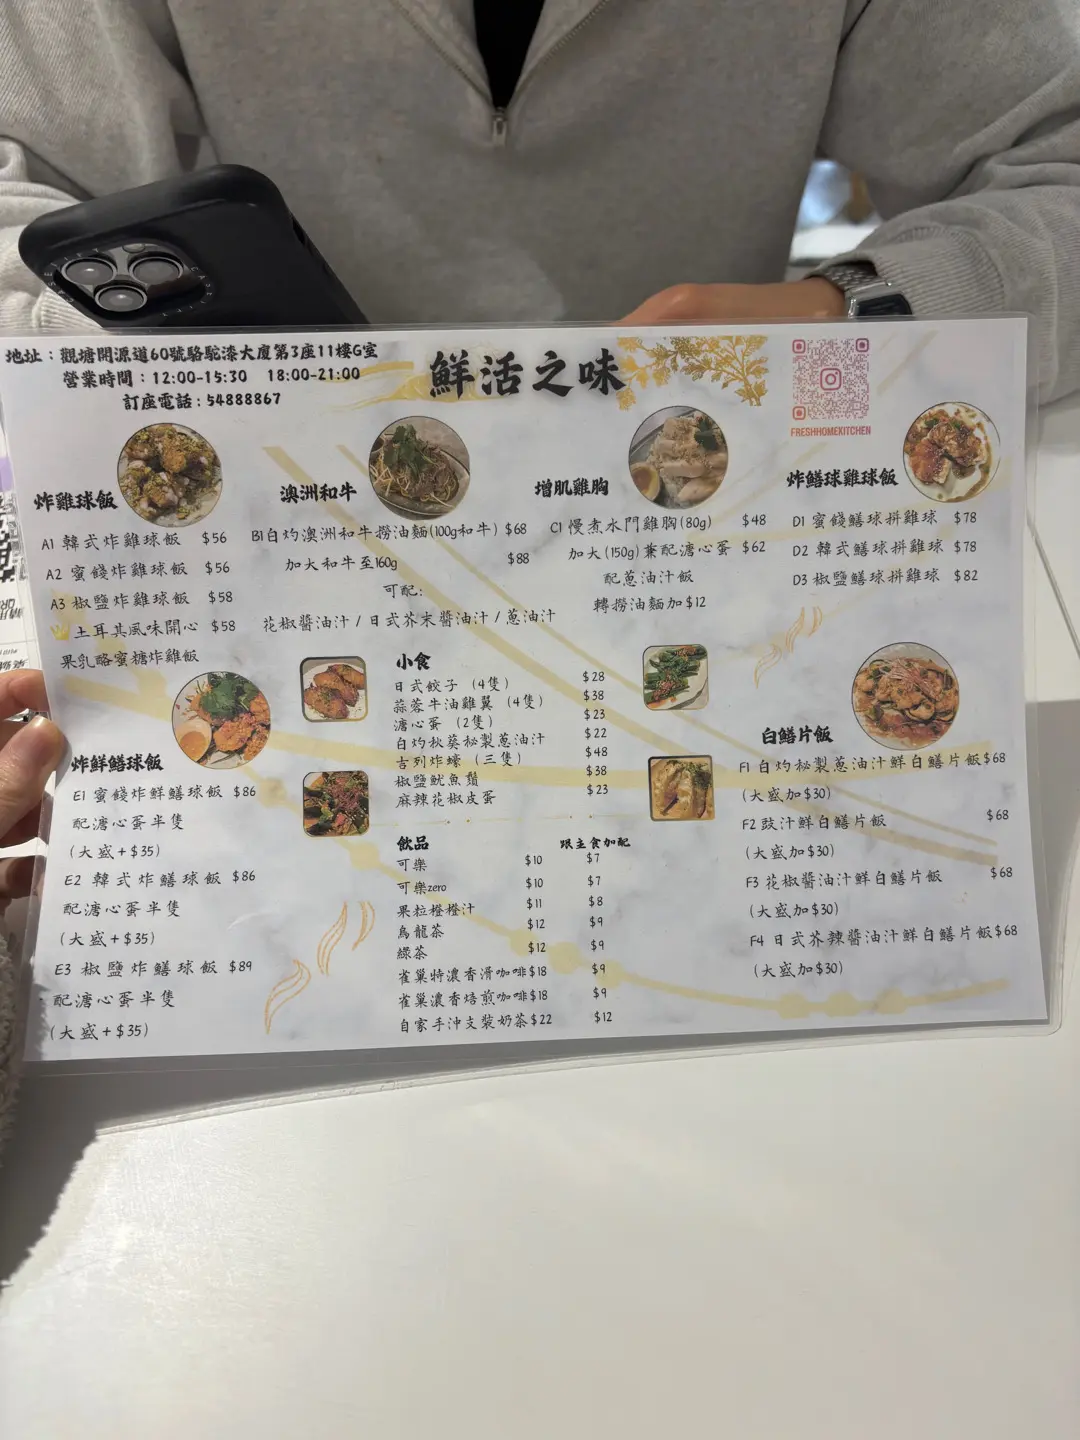 地址：觀塘開源道60號駱駝漆大廈第3座11樓G室
營業時間：12:00-15:30 18:00-21:00
訂座電話：54888867
鮮活之味
FRESHHOMEKITCHEN
炸雞球飯
A1 韓式炸雞球飯 $56
A2 蜜餞炸雞球飯 $56
A3 椒鹽炸雞球飯 $58
土耳其風味開心 $58
果乳酪蜜糖炸雞飯
澳洲和牛
B1白灼澳洲和牛撈油麵(100g和牛) $68
加大和牛至160g $88
可配:
花椒醬油汁 / 日式芥末醬油汁 / 蔥油汁
增肌雞胸
C1 慢煮水門雞胸(80g) $48
加大(150g)兼配溏心蛋 $62
配蔥油汁飯
轉撈油麵加$12
炸鱔球雞球飯
D1 蜜餞鱔球拼雞球 $78
D2 韓式鱔球拼雞球 $78
D3 椒鹽鱔球拼雞球 $82
炸鮮鱔球飯
E1 蜜餞炸鮮鱔球飯 $86
配溏心蛋半隻
(大盛+$35)
E2 韓式炸鱔球飯 $86
配溏心蛋半隻
(大盛+$35)
E3 椒鹽炸鱔球飯 $89
配溏心蛋半隻
(大盛+$35)
小食
日式餃子 (4隻) $28
蒜蓉牛油雞翼 (4隻) $38
溏心蛋 (2隻) $23
白灼秋葵秘製蔥油汁 $22
吉列炸蠔 (三隻) $48
椒鹽魷魚鬚 $38
麻辣花椒皮蛋 $23
飲品 跟主食加配
可樂 $10 $7
可樂zero $10 $7
果粒橙橙汁 $11 $8
烏龍茶 $12 $9
綠茶 $12 $9
雀巢特濃香滑咖啡$18 $9
雀巢濃香焙煎咖啡$18 $9
自家手沖支裝奶茶$22 $12
白鱔片飯
F1 白灼秘製蔥油汁鮮白鱔片飯$68
(大盛加$30)
F2 豉汁鮮白鱔片飯 $68
(大盛加$30)
F3 花椒醬油汁鮮白鱔片飯 $68
(大盛加$30)
F4 日式芥辣醬油汁鮮白鱔片飯$68
(大盛加$30)